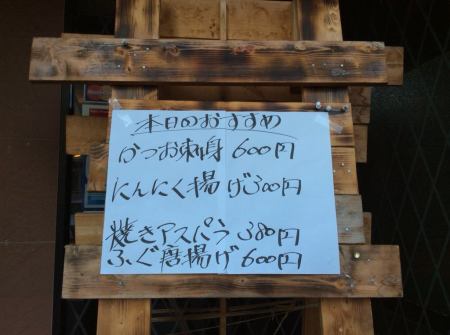 本日のおすすめ
かつお刺身 600円
にんにく揚げ 300円
焼きアスパラ 380円
ふぐ唐揚げ 600円